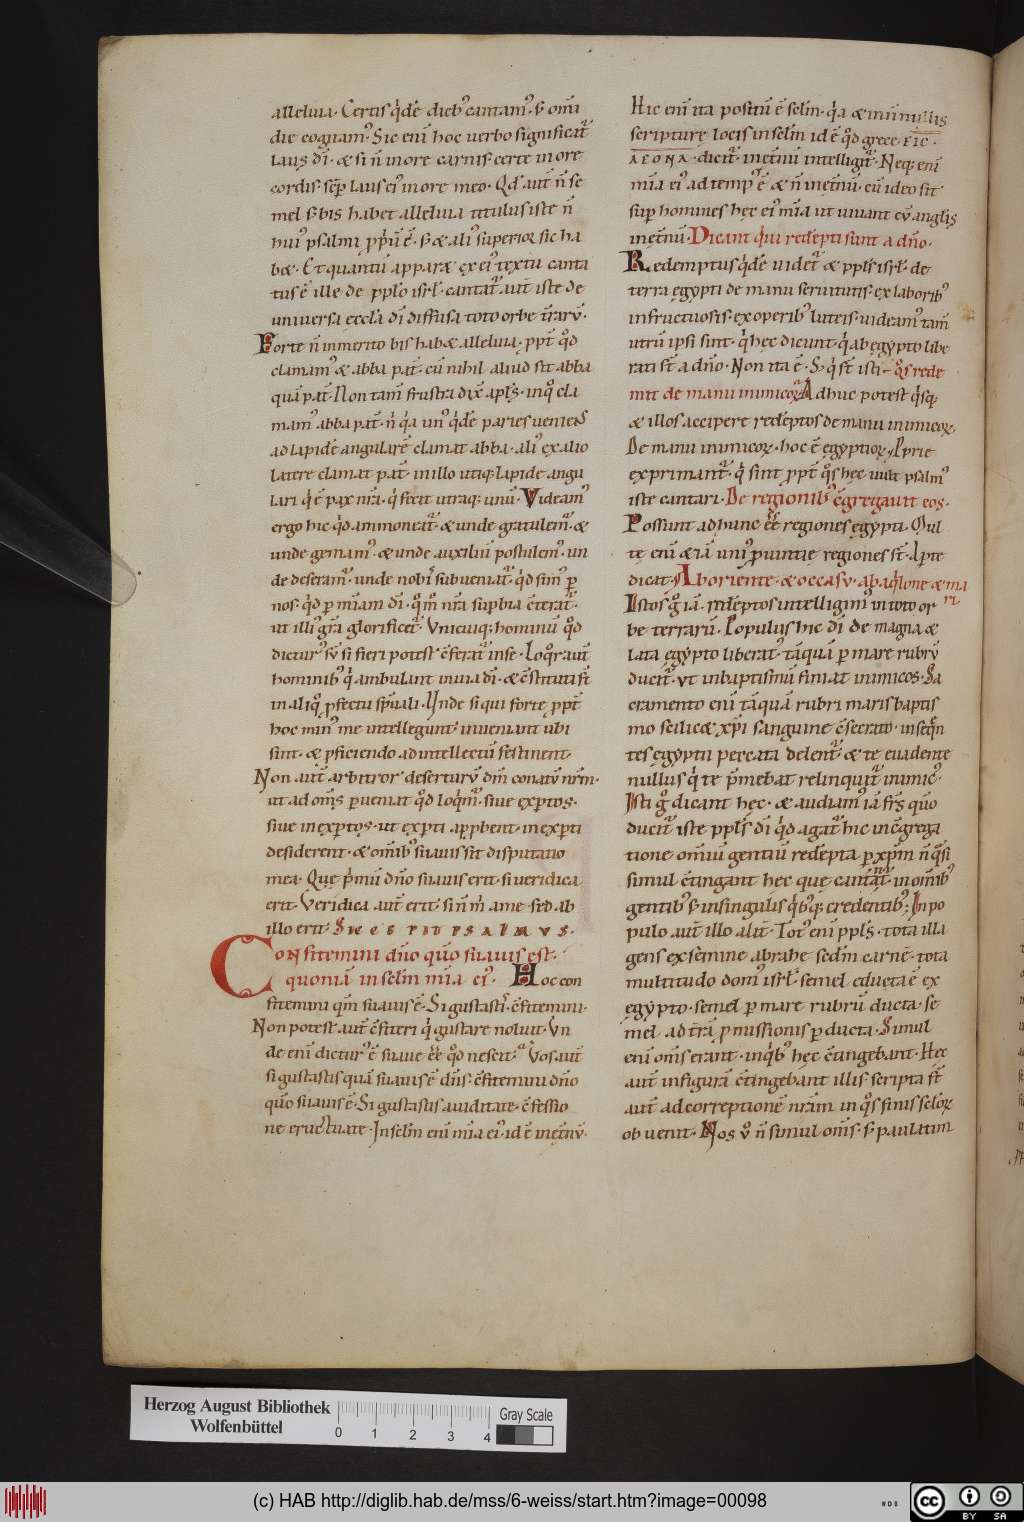 alleluia· Certis q̇dē dieb᾽ cantam᾽· ṡ om̄i
die cogitam᾽· Sic eni hoc uerbo significat̄
laus dī· & si n̄ in ore carnis· certe in ore
cordis· sēp laus ei᾽ in ore meo· Qd aut̄ n̄ se
mel s; bis habet alleluia titulus iste n̄
hui᾽ psalmi p̄priū ē· s; & ali᾽ superior sic ha
b&· Et quantū appar& ex ei᾽ textu canta
tus ē ille de ppło isrł· cantat̄ aut̄ iste de
uniuersa eccła dī diffusa toto orbe t̄rarū·
Forte n̄ inmerito bis hab& alleluia· ppt̄ qd
clamam᾽ & abba pat̄· cū nihil aliud sit abba
quā pat̄· Non tam̄ frustra dix̄ apls̄· in quo cla
mam᾽ abba pat̄· n̄ q̇a un᾽ q̇dē paries ueniens
ad lapidē angularē clamat abba· ali᾽ ex alio
latere clamat pat̄· in illo utiq; lapide angu
lari q̇ ē pax nr̄a· q̇ fecit utraq; unū· Videam᾽
ergo hic qd ammoneat̄· & unde gratulem̄· &
unde gemam᾽· & unde auxiliū postulem᾽· un
de deseram̄· unde nobis subueniat̄· qd sim᾽ p̱
nos· qd p̱ mīam dī· qm̄ nr̄a supbia c̄terat̄·
ut illi᾽ gr̄a glorificet̄· Unicuiq; hominū qd
dictur᾽ sū si fieri potest c̄ferat̄ in se· Loqr aut̄
hominib᾽ q̇ ambulant in uia dī· & c̄stituti st̄
in aliq̇ pfectu sp̄uali· Unde si qui forte ppt̄
hoc min᾽ me intellegunt· inueniant ubi
sint· & pficiendo ad intellectū festinent·
Non aut̄ arbitror deserturū dm̄ conatū nrm̄·
ut ad om̄s p̱ueniat qd loq̇m̄· siue exptos·
siue inexptos· ut expti approbent· inexpti
desiderent· & om̄ib᾽ suauis sit disputatio
mea· Que p̄mū dn̄o suauis erit· si ueridica
erit· Veridica aut̄ erit· si n̄ m̄ a me· sed ab
illo erit· SIC CEPIT PSALMVS·
Confitemini dn̄o qm̄ suauis est·
quoniā in sclm̄ mīa ei᾽· Hoc con
fitemini qm̄ suauis ē· Si gustastis· c̄fitemini·
Non potest aut̄ c̄fiteri q̇ gustare noluit· Un
de eni dictur᾽ ē suaue ēē qd nescit· Vos aut̄
si gustastis quā suauis ē dn̄s· c̄fitemini dn̄o
qm̄ suauis ē· Si gustastis auiditate· c̄fessio
ne eructuate· In sclm̄ eni mīa ei᾽· id ē inet̄nū·
Hic eni ita positū ē sclm̄· q̇a & in n̄nullis
scripturę locis in sclm̄ id ē qd grece ΕΙC·
ΑΕΟΝΑ· dicit̄· inet̄nū intelligit̄· Neq; eni
mīa ei᾽ ad temp᾽ ē & n̄ inet̄nū· cū ideo sit
sup homines hęc ei᾽ mīa ut uiuant cū anglis
inet̄nū· Dicant q̇ui redēpti sunt a dn̄o·
Redemptus q̇dē uidet̄ & ppls̄ isrł· de
terra egypti de manu seruitutis· ex laborib᾽
infructuosis· ex operib᾽ luteis· uideam᾽ tam̄
utrū ipsi sint· q̇ hęc dicunt· q̇ ab egypto libe
rati st̄ a dn̄o· Non ita ē· S; q̇ st̄ isti· qs rede
mit de manu inimicoꝝ· Adhuc potest q̇sq;
& illos accipere redēptos de manu inimicoꝝ·
De manu inimicoꝝ· hoc ē egyptioꝝ· Aprte
exprimant̄· q̇ sint ppt̄ qs hęc uult psalm᾽
iste cantari· De regionib᾽ c̄gregauit eos·
Possunt adhunc ēē regiones egypti· Mul
tę eni & iā uni᾽ p̱uintię regiones st̄· Aprte
dicat· Ab oriente· & occasu· ab aq̇lone & ma
ri
Istos g iā redēptos intelligim᾽ in toto or
be terrarū· Populus hic dī de magna &
lata egypto liberat᾽· tāquā p̱ mare rubrū
ducit̄· ut in baptismū finiat inimicos· Sa
cramento eni tāquā rubri maris baptis
mo scilic& xp̄i sanguine c̄secrato· inseqn̄
tes egyptii peccata delent̄· & te euadente
nullus q̇ te p̄mebat relinquit̄ inimic᾽·
Isti g dicant hęc· & audiam᾽ iā frs̄ quo
ducit̄ iste ppls̄ dī qd agat̄ hic in c̄grega
tione om̄iū gentiū redēpta p̱ xpm̄ n̄ q̇si
simul c̄tingant hęc que cantant̄ in om̄ib᾽
gentib᾽ s; in singulis q̇b᾽q; credentib᾽· In po
pulo aut̄ illo alit̄· Tot᾽ eni ppls̄· tota illa
gens ex semine abrahę sedm̄ carnē· tota
multitudo dom᾽ isrł· semel educta ē ex
egypto· semel p̱ mare rubrū ducta· se
mel ad t̄rā p̱missionis p̱ducta· Simul
eni om̄s erant· in q̇b᾽ hęc c̄tingebant· Hęc
aut̄ in figurā c̄tingebant illis· scripta st̄
aut̄ ad correptionē nr̄am in qs finis scloꝝ
obuenit· Nos v̊ n̄ simul om̄s· s; paulatim
Herzog August Bibliothek
Wolfenbüttel
0 1 2 3 4
Gray Scale
(c) HAB http://diglib.hab.de/mss/6-weiss/start.htm?image=00098
WDB
cc BY SA